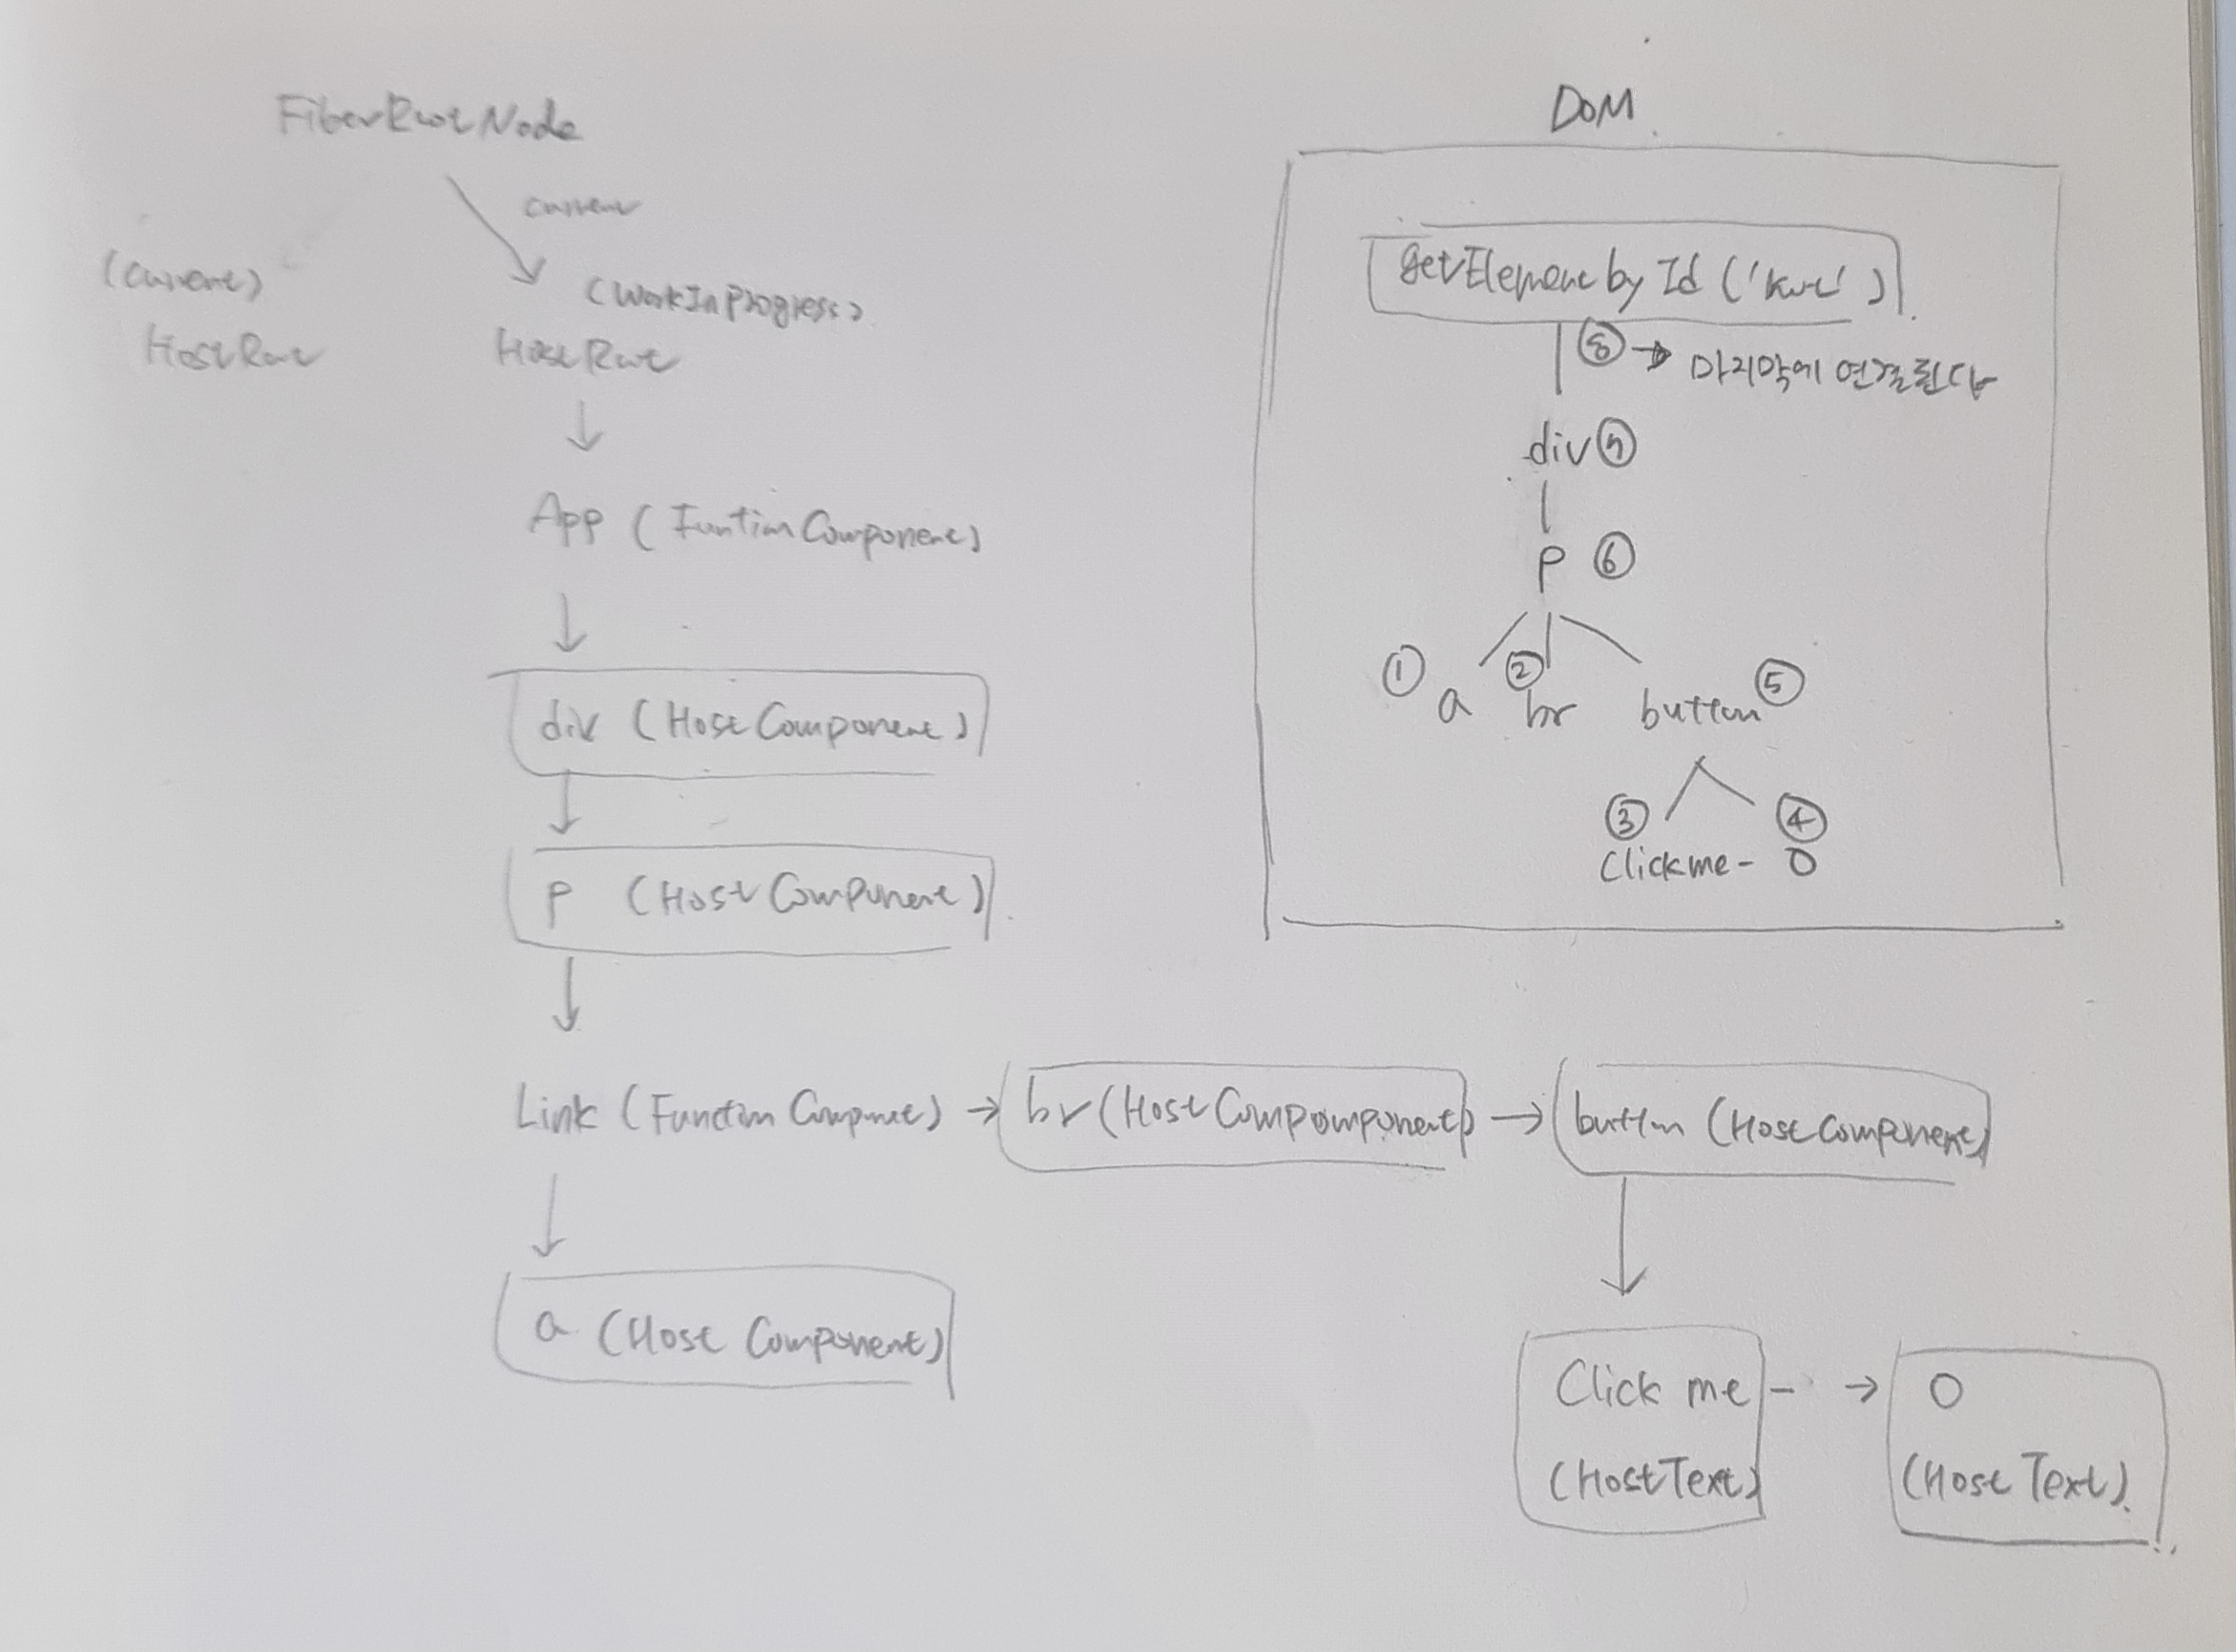 FiberRootNode
current
(current)
HostRoot
(WorkInProgress)
HostRoot
App (FuntionComponent)
div (HostComponent)
p (HostComponent)
Link (Function Component) → br (HostCompomponent) → button (HostComponent)
a (Host Component)
Click me - → 0
(HostText) (Host Text)
DOM
getElement by Id ('root')
⑧ → 마지막에 연결된다
div ⑦
p ⑥
① a ② br button ⑤
③ ④
Click me - 0